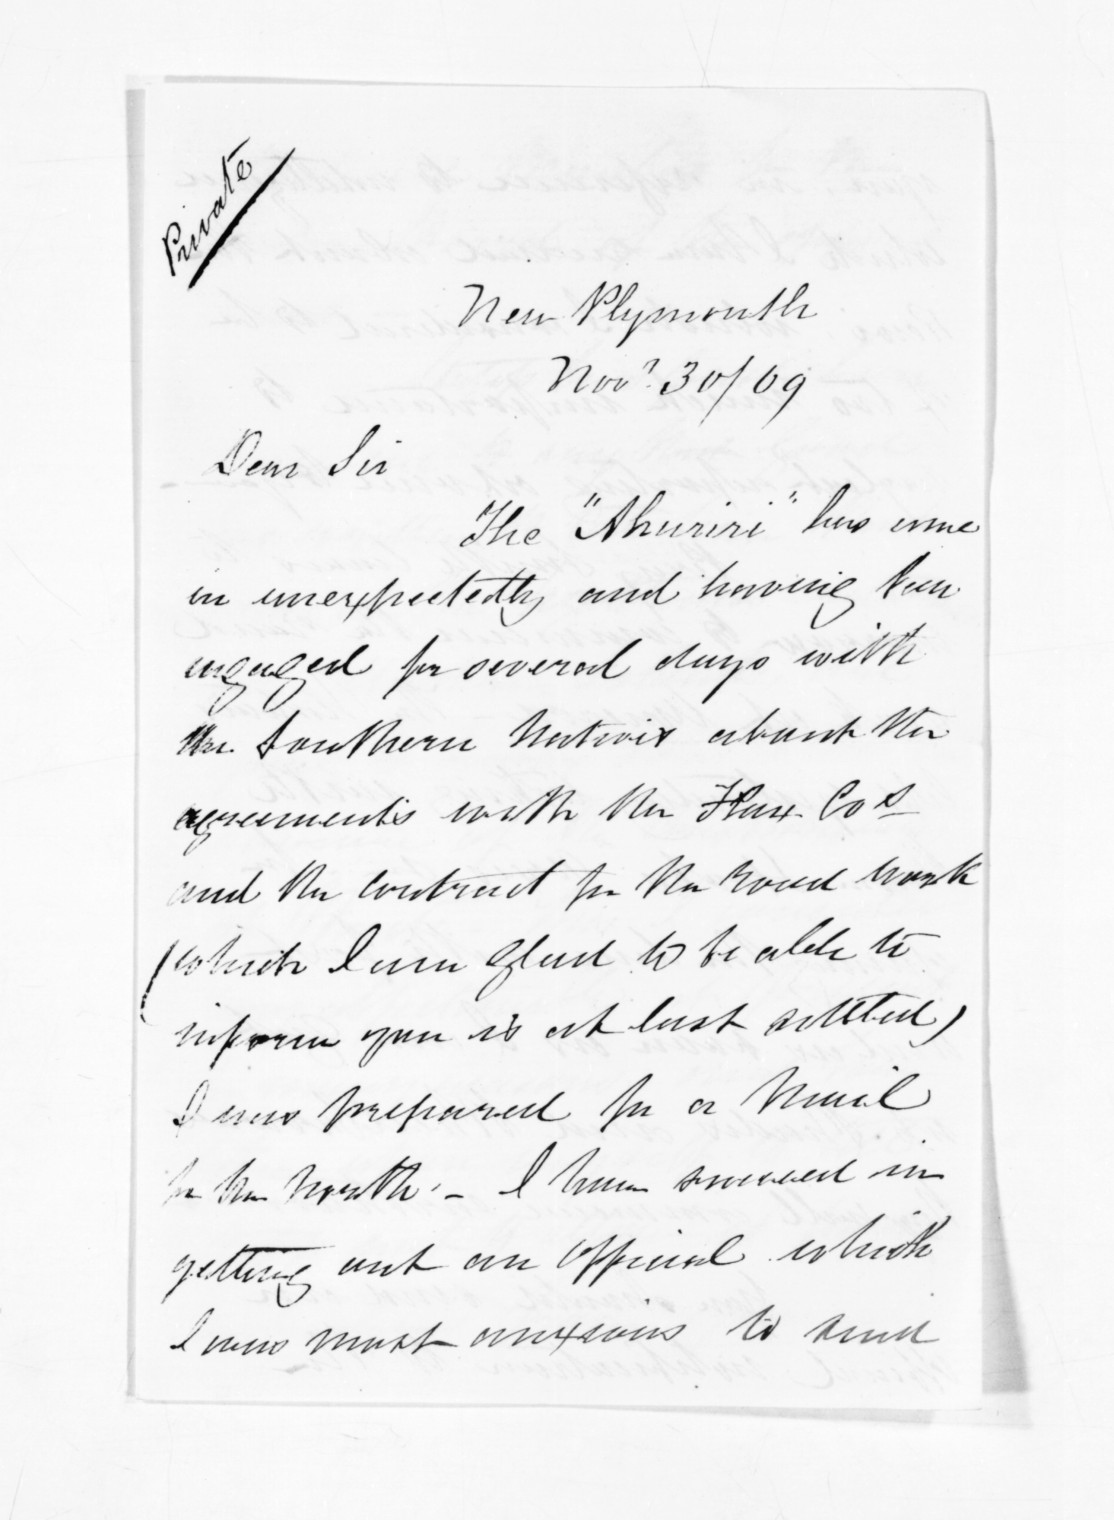 Private
New Plymouth
Novr. 30/69
Dear Sir
The "Ahuriri" has come
in unexpectedly and having been
engaged for several days with
the Southern Natives about the
agreements with the Flax Cos
and the contract for the Road work
(which I am glad to be able to
inform you is at last settled)
I was prepared for a Mail
for the North. - I have succeed in
getting out an Official which
I was most anxious to send